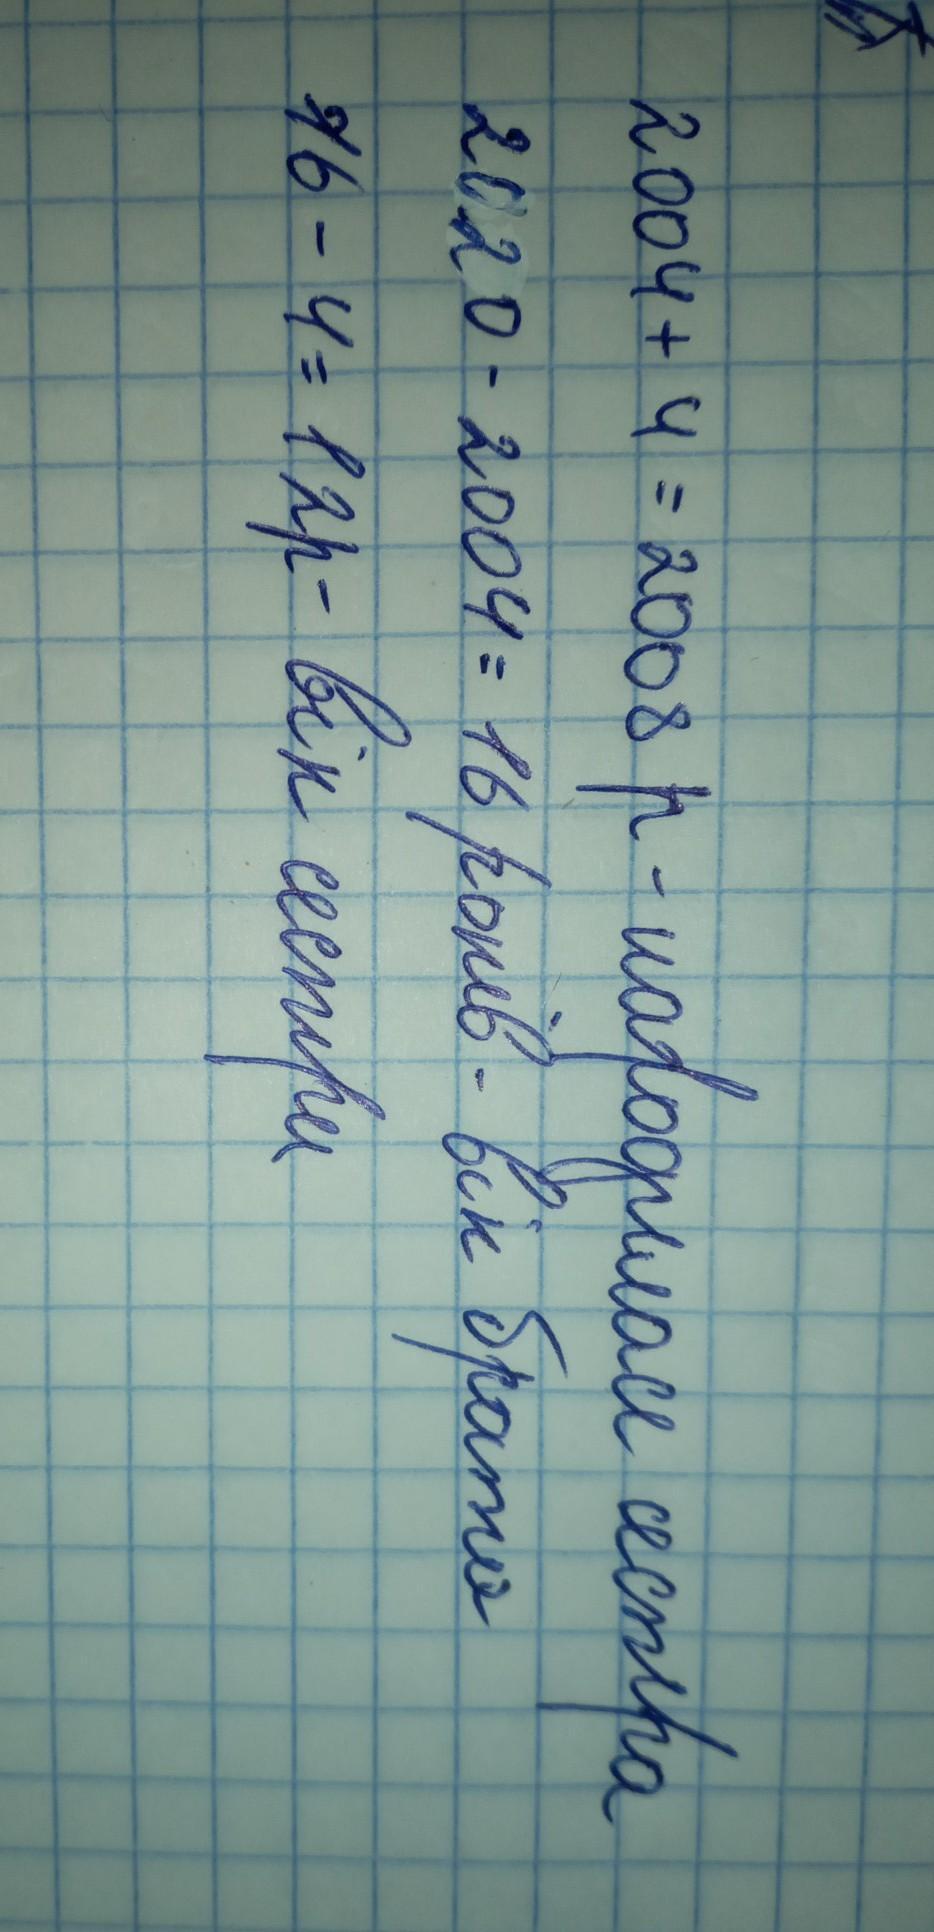 2004 + 4 = 2008 р - народилася сестра
2020 - 2004 = 16 років - вік брата
16 - 4 = 12р - вік сестри